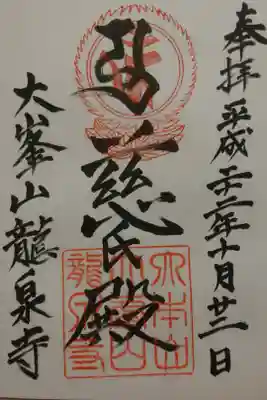 奉拝 平成二十二年十月廿二日
弥慈氏殿
大峯山龍泉寺
大本山
大峯山
龍泉寺